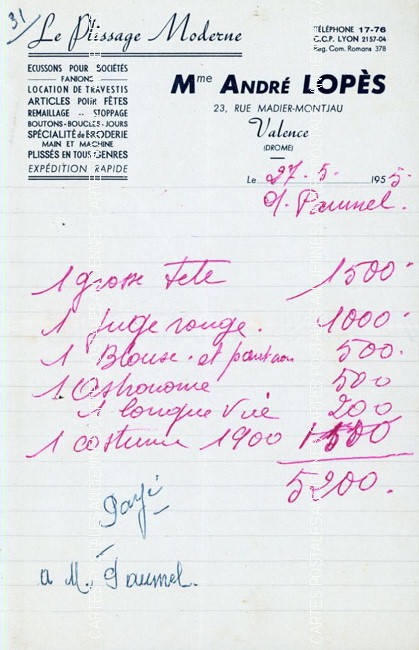 31
Le Plissage Moderne
TÉLÉPHONE 17-76
C.C.P. LYON 2157-04
Reg. Com. Romans 378
ECUSSONS POUR SOCIÉTÉS
FANIONS
LOCATION DE TRAVESTIS
ARTICLES POUR FÊTES
REMAILLAGE -- STOPPAGE
BOUTONS-BOUCLES-JOURS
SPÉCIALITÉ de BRODERIE
MAIN ET MACHINE
PLISSÉS EN TOUS GENRES
EXPÉDITION RAPIDE
Mme ANDRÉ LOPÈS
23, RUE MADIER-MONTJAU
Valence
(DROME)
Le 27.5. 1955.
Paumel.
1 grosse tete 1500
1 juge rouge. 1000
1 Blouse et pantalon 500.
1 Astronome 500
1 longue vue 200
1 costume 1900 1500
5200.
Payé
a M. Paumel.